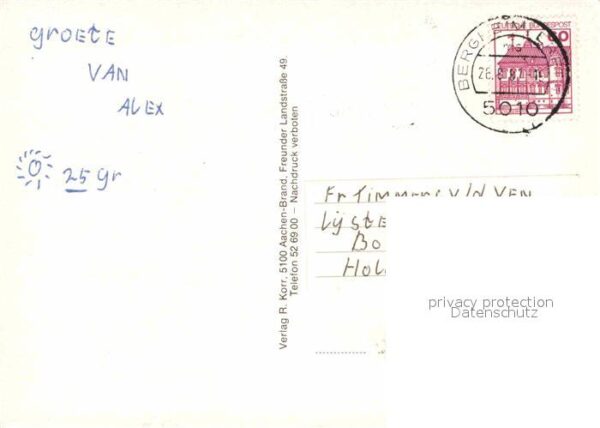 GROETE
VAN
ALEX
25 gr
Verlag R. Korr, 5100 Aachen-Brand, Freunder Landstraße 49
Telefon 52 69 00 – Nachdruck verboten
BERGHEIM
26.8.82
5010
DEUTSCHE BUNDESPOST
60
Fr Timmers V/D VEN
Lijste
Bo
Hol
privacy protection
Datenschutz